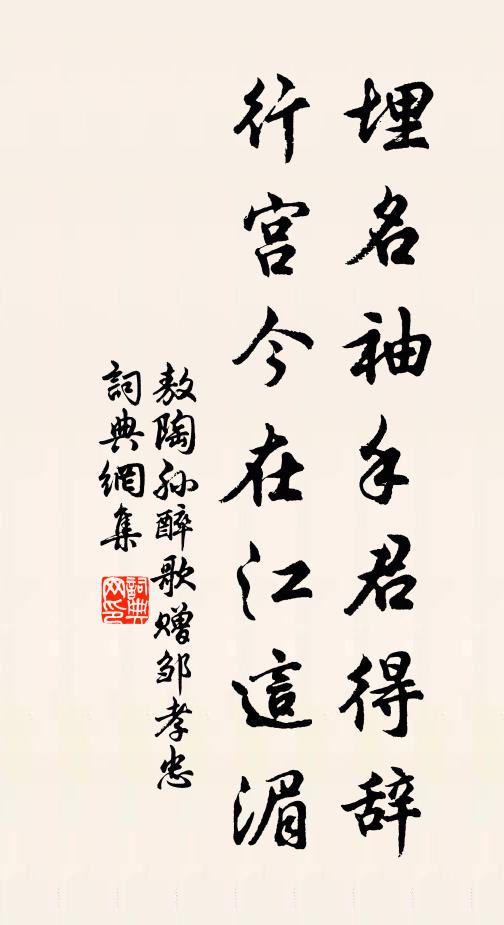 埋名袖手君得辞
行宫今在江這湄
敖陶孙醉歌赠邹孝忠
詞典網集
詞典網印